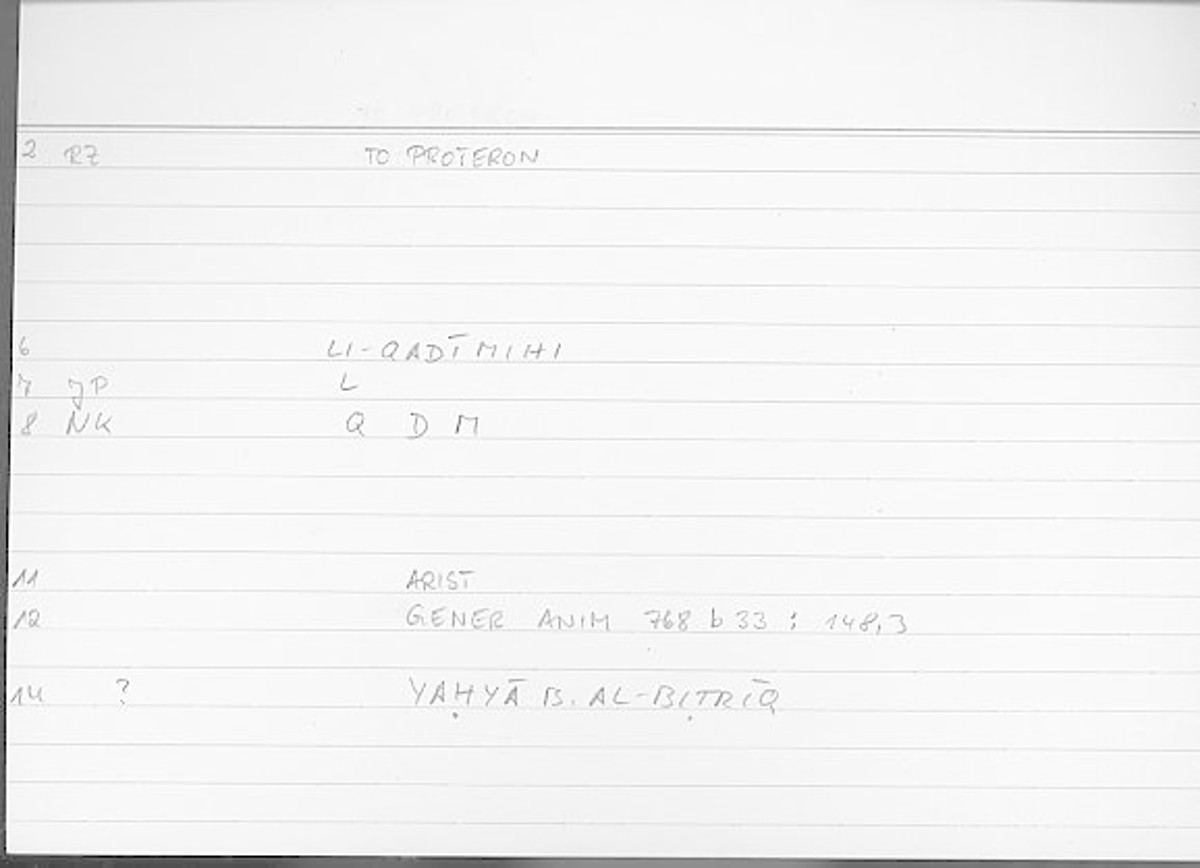 2 RZ TO PROTERON
6 LI-QADĪMIHI
7 JP L
8 NK Q D M
11 ARIST
12 GENER ANIM 768 b 33 : 148,3
14 ? YAḤYĀ B. AL-BIṬRĪQ